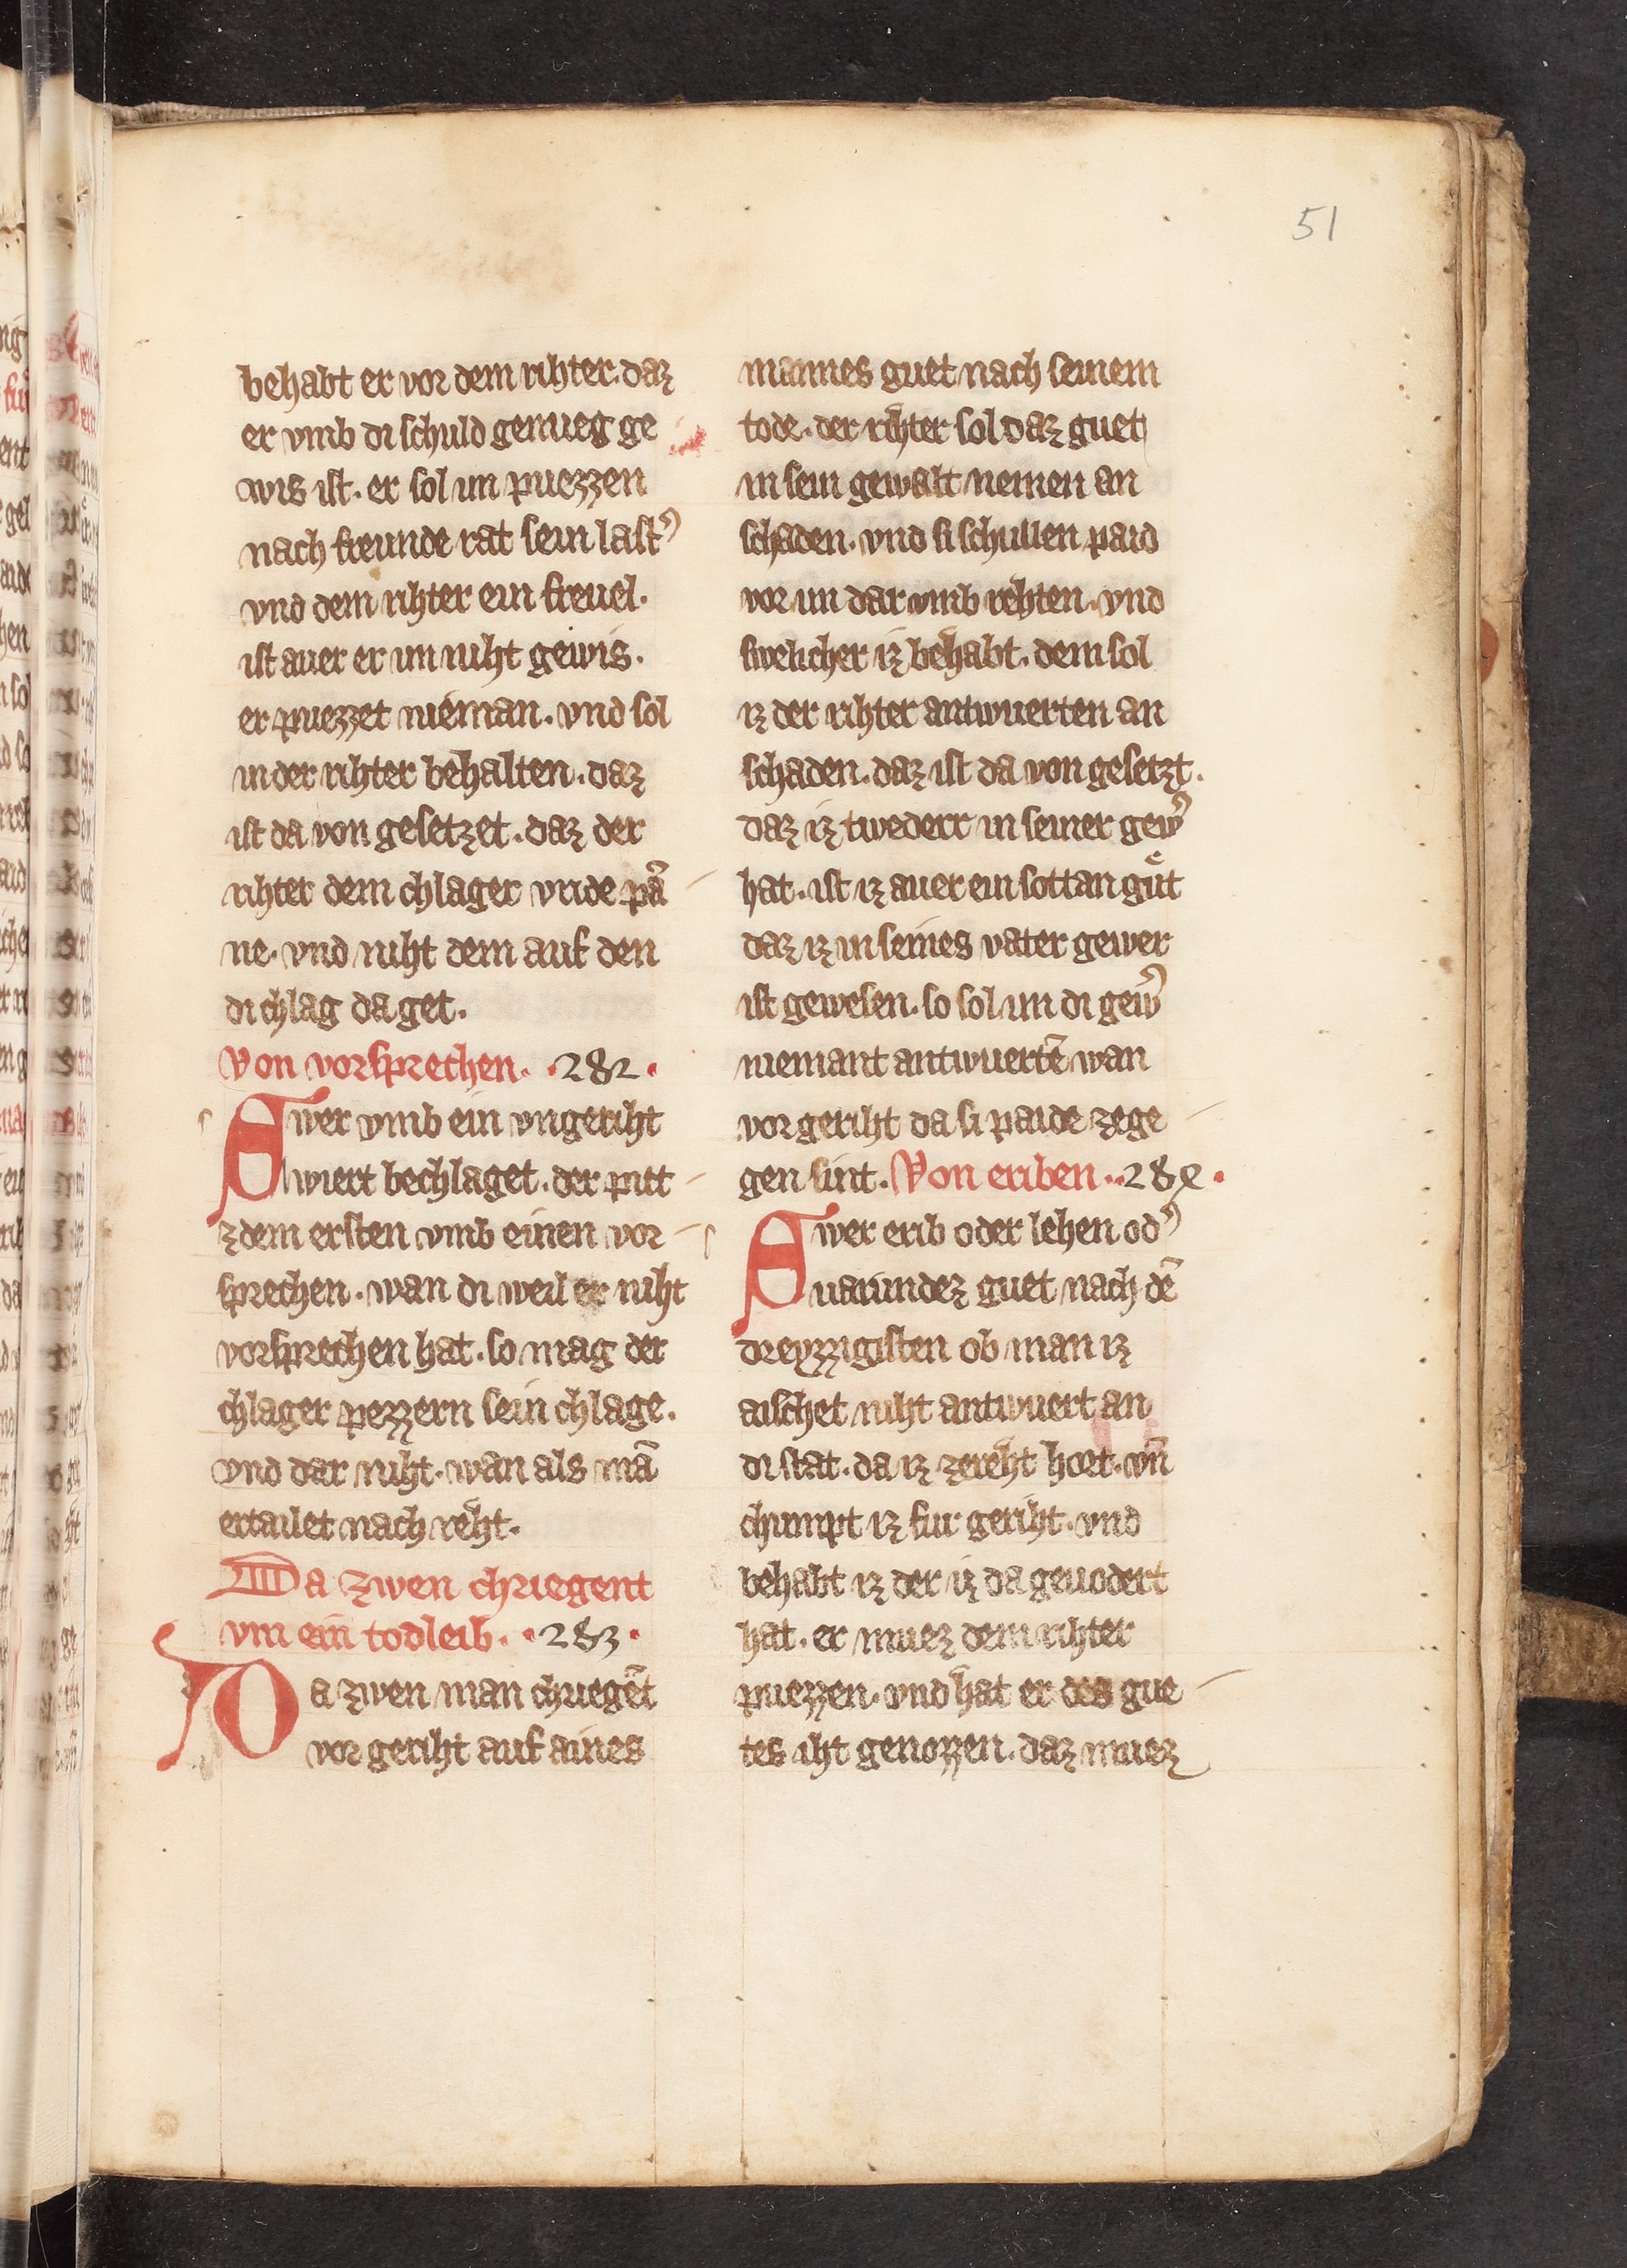 51
behabt er vor dem rihter. daz
er vmb di schuld genueg ge
wis ist. er sol im puezzen
nach freunde rat sein last᾽
vnd dem rihter ein freuel.
ist auer er im niht gewis.
er puezzet nieman. vnd sol
in der rihter behalten. daz
ist da von gesetzet. daz der
rihter dem chlager vride pā
ne. vnd niht dem auf den
di chlag da get.
Von vorsprechen. .282.
Swer vmb ein vngeriht
wiert bechlaget. der pitt
zdem ersten vmb einen vor
sprechen. wan di weil er niht
vorsprechen hat. so mag der
chlager pezzern sein chlage.
vnd dar niht. wan als mā
ertailet nach reht.
Da zwen chriegent
vm ein todleib. .283.
Da zwen man chriegēt
vor geriht auf aines
mannes guet nach seinem
tode. der rihter sol daz guet
in sein gewalt nemen an
schaden. vnd si schullen paid
vor im dar vmb rehten. vnd
swelicher iz behabt. dem sol
iz der rihter antwuerten an
schaden. daz ist da von gesetzt.
daz iz twederr in seiner gew᾽
hat. ist iz auer ein sottan guͤt
daz iz in seines vater gewer
ist gewesen. so sol im di gew᾽
niemant antwuertē wan
vor geriht da si paide zege
gen sint. Von eriben. .284.
Swer erib oder lehen od᾽
uarundez guet nach dē
dreyzzigisten ob man iz
aischet niht antwuert an
di stat. da iz zereht hort. vn̄
chumpt iz fur geriht. vnd
behabt iz der iz da geuodert
hat. er muez dem rihter
puezzen. vnd hat er des gue
tes iht genozzen. daz muez